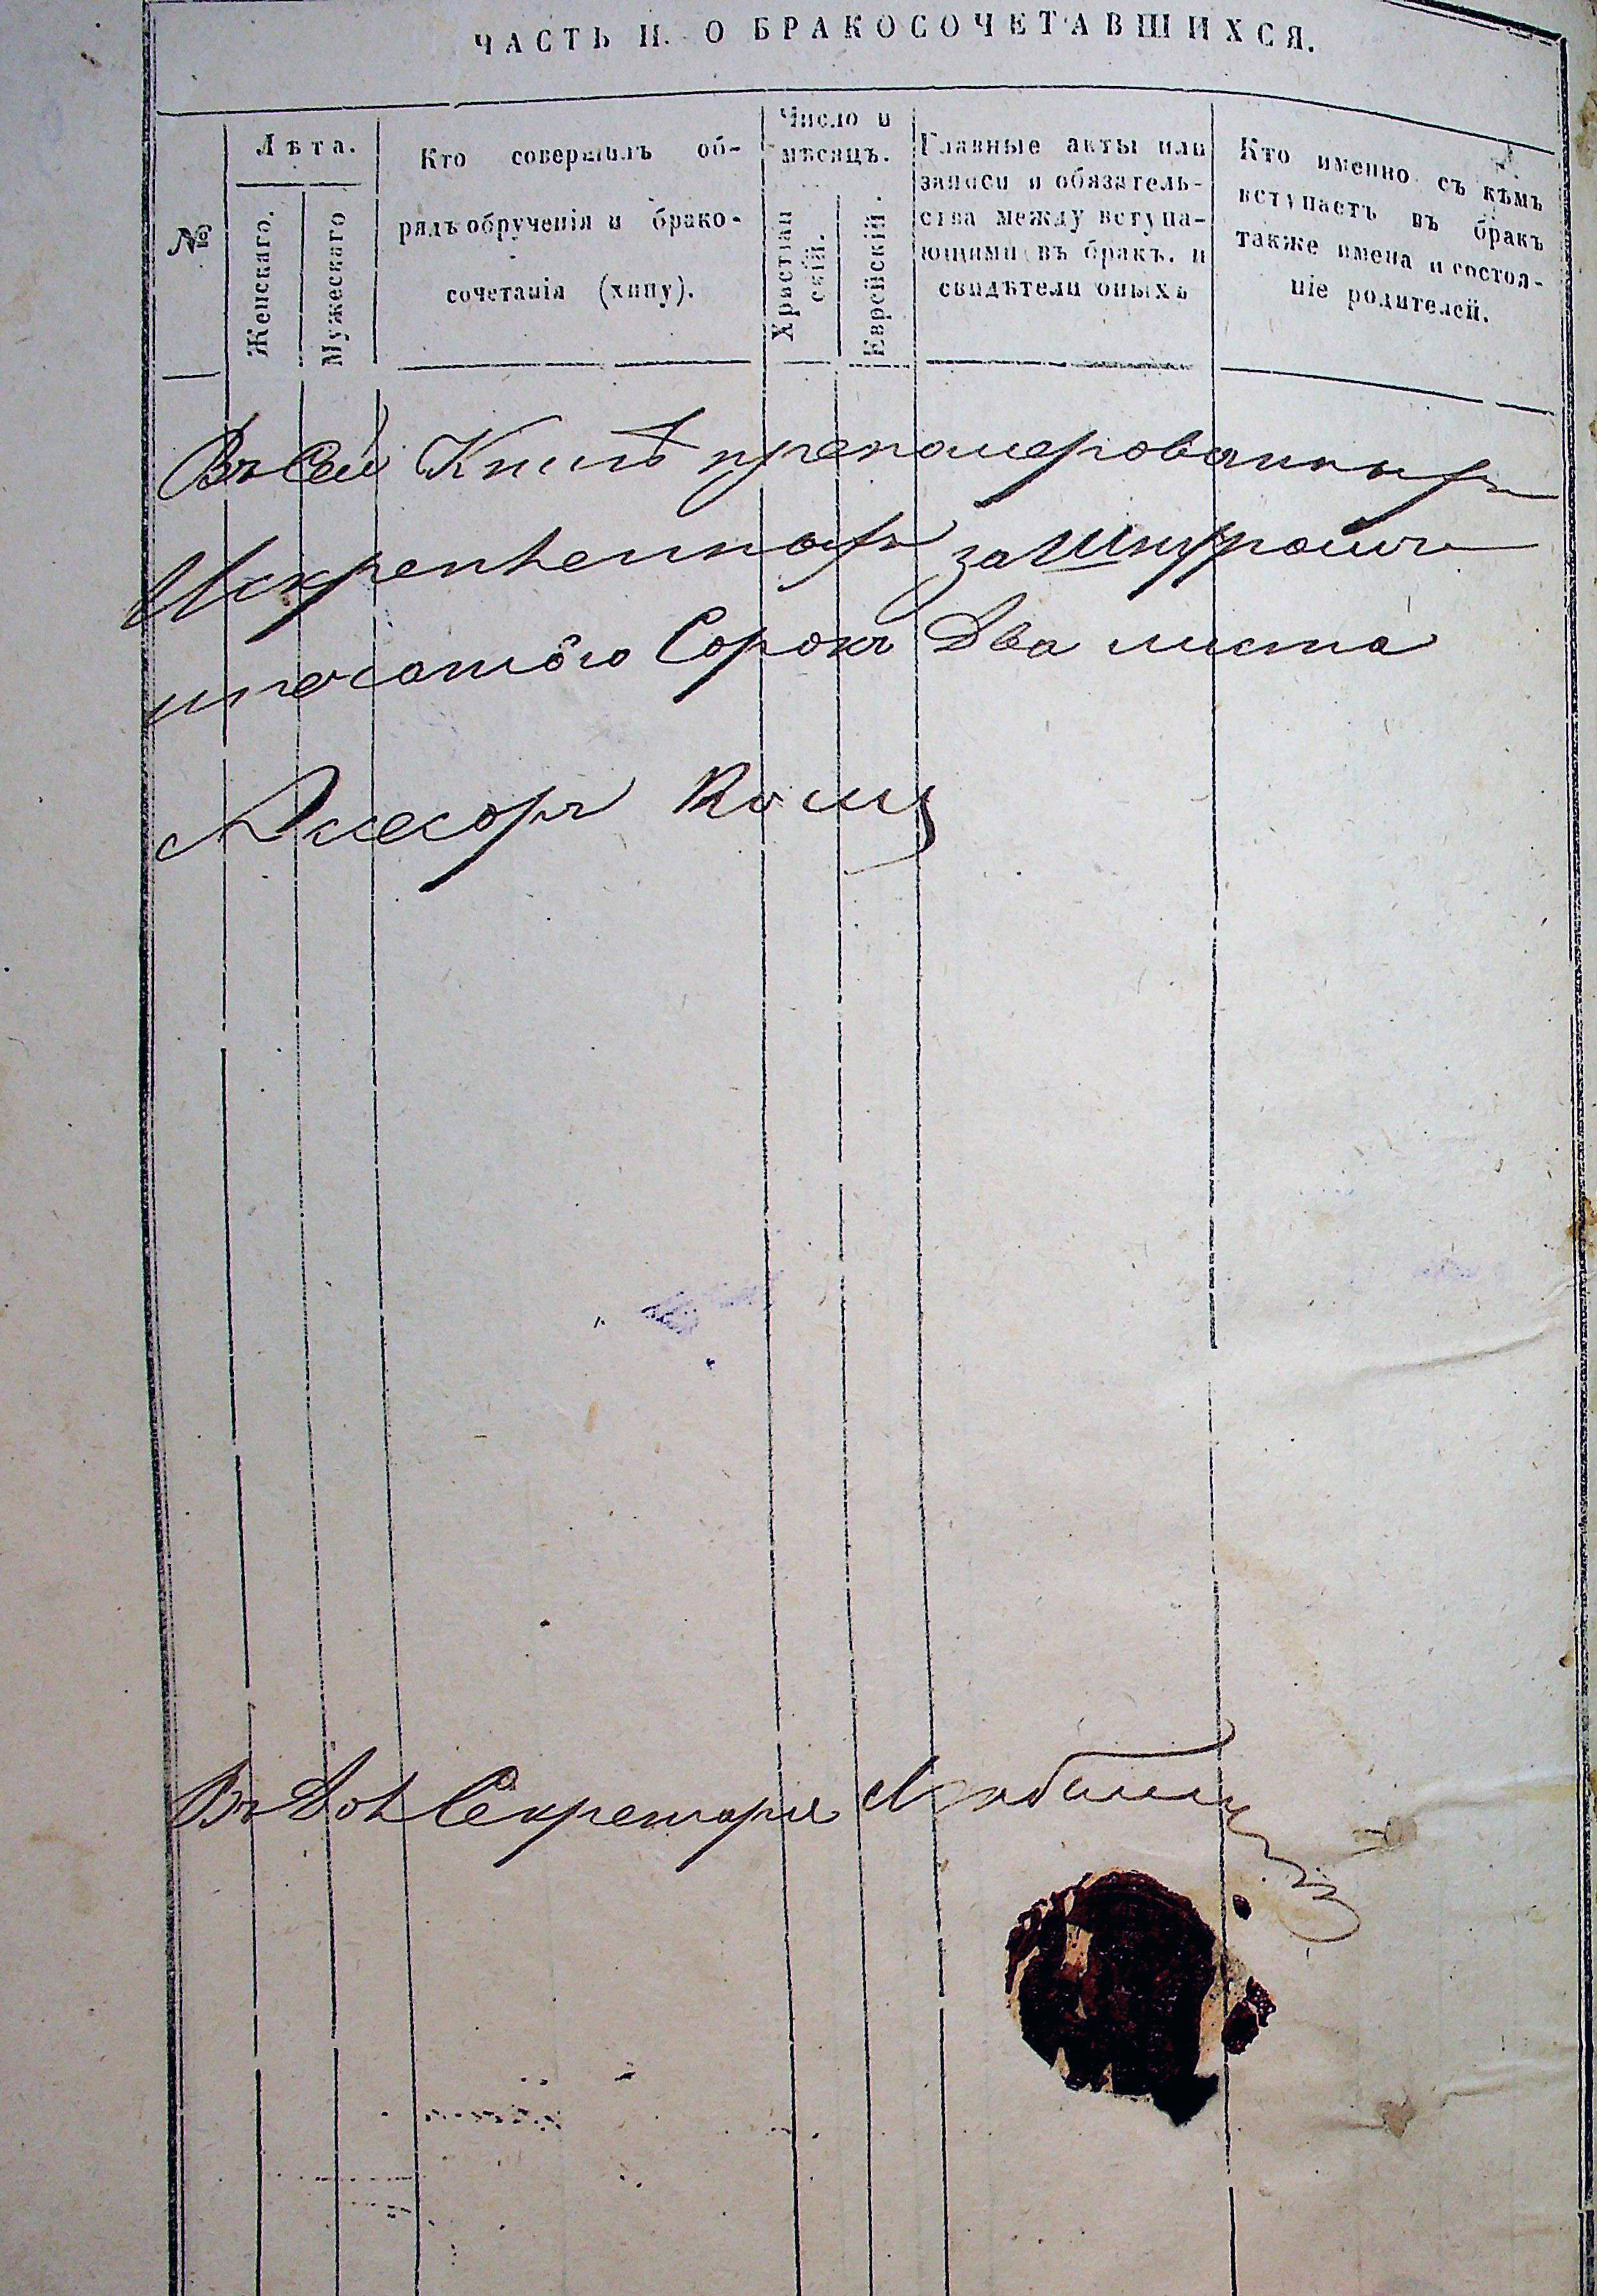 ЧАСТЬ II. О БРАКОСОЧЕТАВШИХСЯ.
№
Лѣта.
Женскаго.
Мужескаго
Кто совершилъ об-
рядъ обрученія и брако-
сочетанія (хипу).
Число и
мѣсяцъ.
Христіан
скій.
Еврейскій.
Главные акты или
записи и обязатель-
ства между вступа-
ющими въ бракъ. и
свидѣтели оныхъ
Кто именно съ кѣмъ
вступаетъ въ бракъ
также имена и состоя-
ніе родителей.
Въ сей Книгѣ преномерованныхъ
и скрепленныхъ за Шнуромъ и
печатью Сорокъ Два листа
Ассесоръ
Въ Дол Секретаря